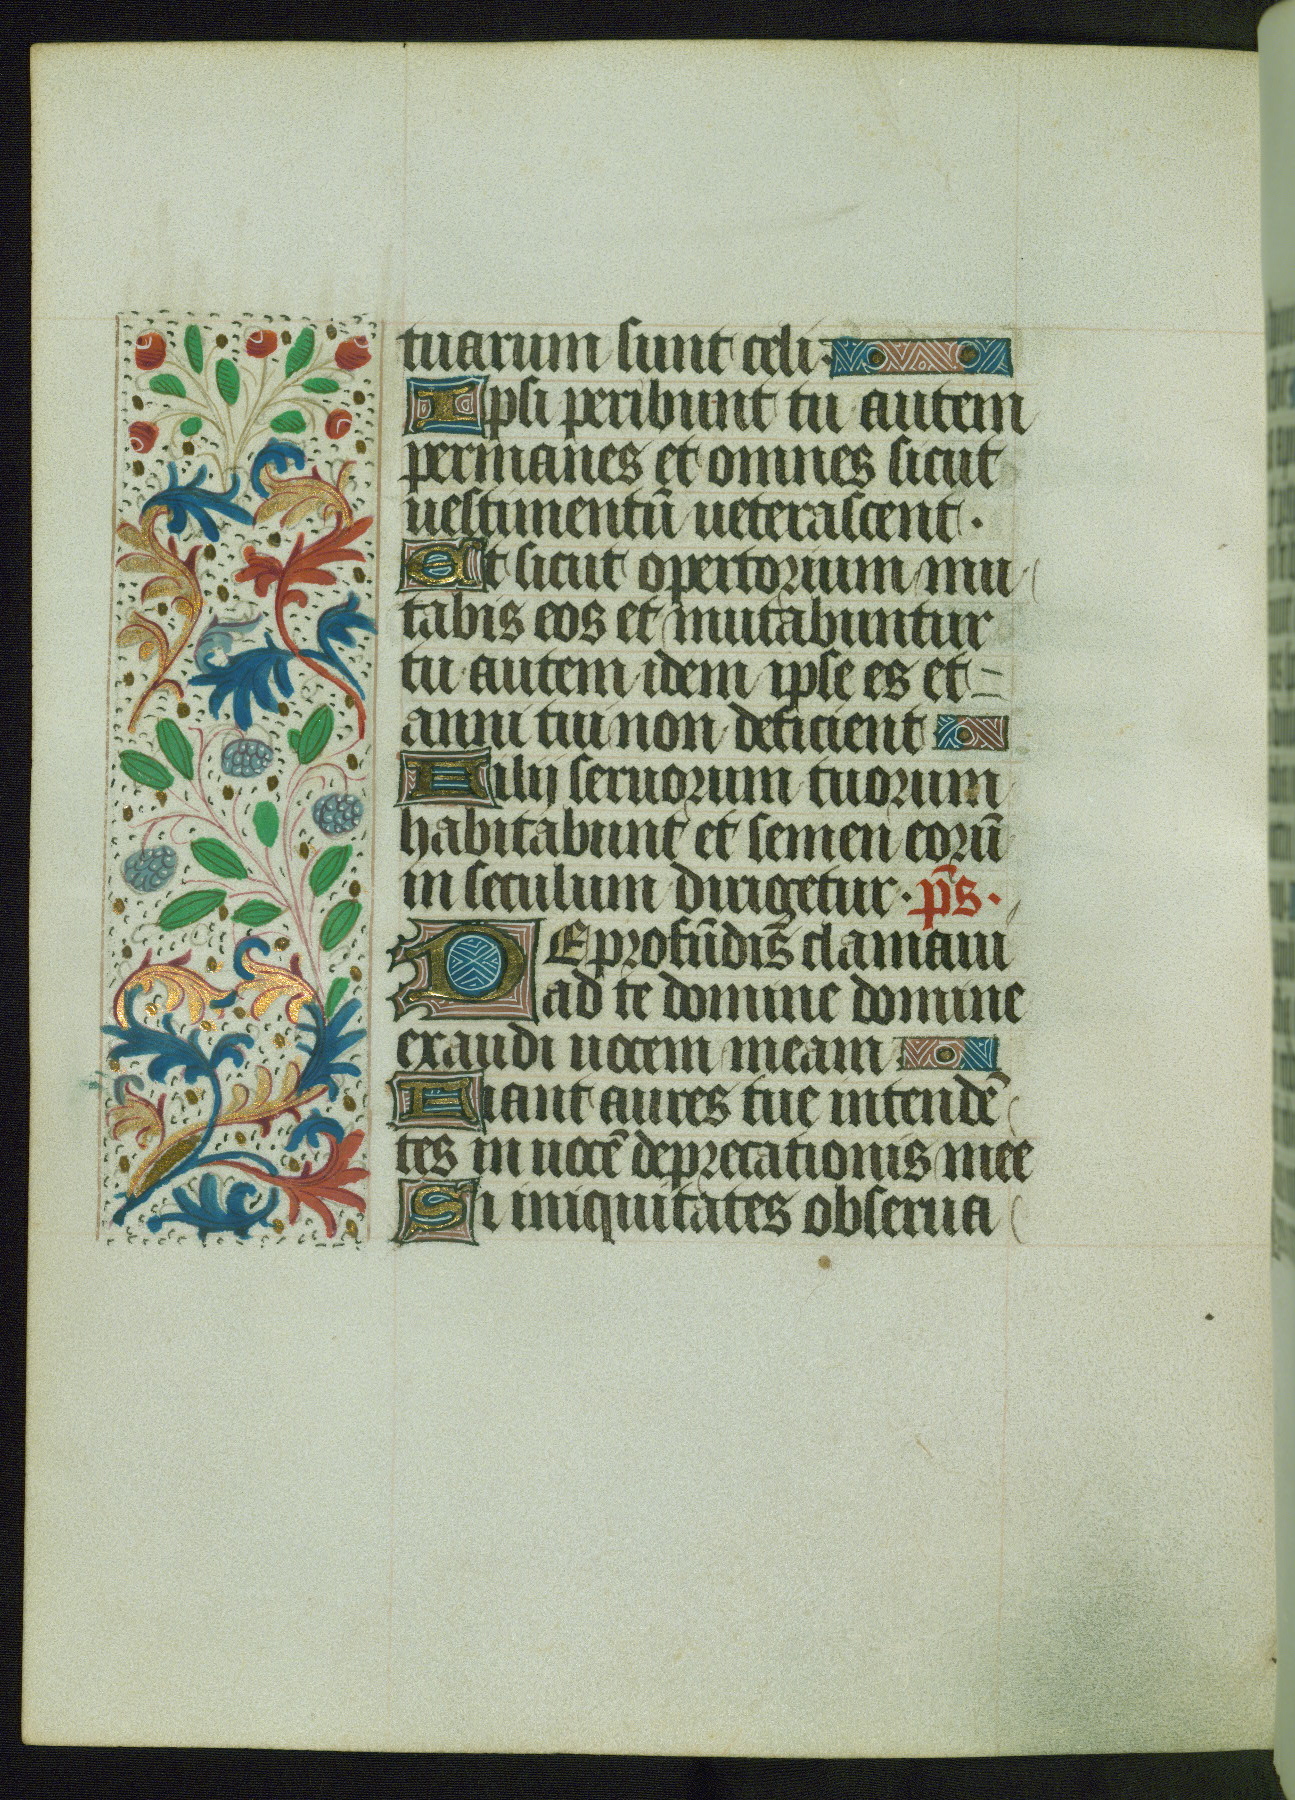 tuarum sunt celi·
Ipsi peribunt tu autem
permanes et omnes sicut
uestimentū ueterascent·
Et sicut opertorium mu
tabis eos et mutabuntur
tu autem idem ipse es et
anni tui non deficient
Filij seruorum tuorum
habitabunt et semen eorū
in seculum dirigetur· p̄s·
DE profūdis clamaui
ad te domine domine
exaudi uocem meam
Fiant aures tue intendē
tes in uocē deprecationis mee
Si iniquitates obserua